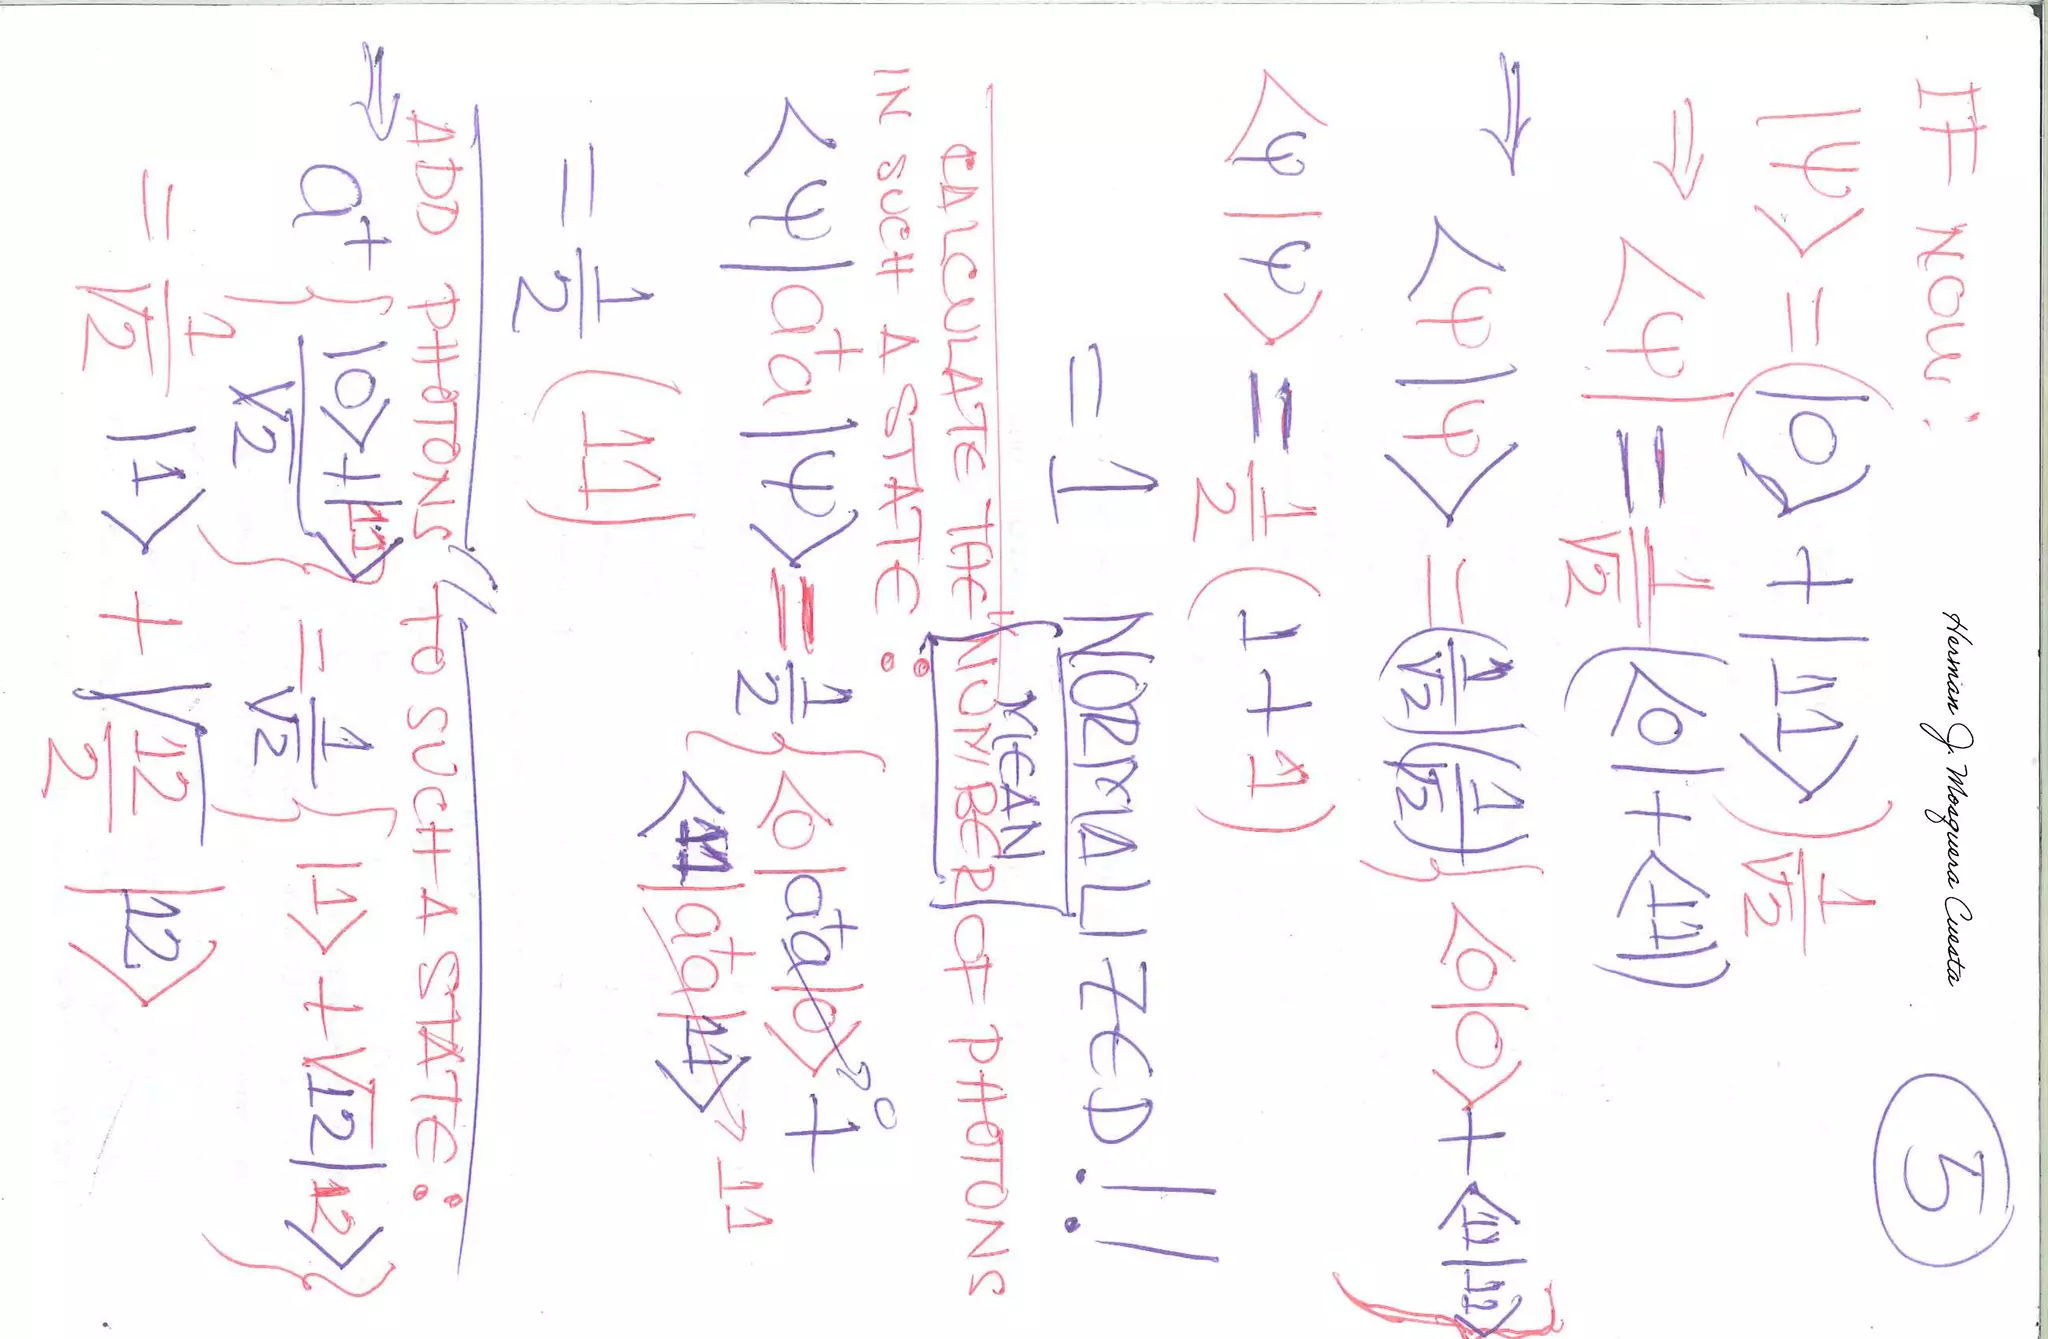 Herman J. Mosquera Cuesta
5
IF NOW:
|ψ> = (|0> + |11>) 1/√2
⇒ <ψ| = 1/√2 (<0| + <11|)
⇒ <ψ|ψ> = (1/√2)(1/√2) { <0|0> + <11|11> }
<ψ|ψ> = 1/2 (1 + 1)
= 1 NORMALIZED!!
CALCULATE THE "MEAN NUMBER OF PHOTONS
IN SUCH A STATE:
<ψ|a+a|ψ> = 1/2 { <0|a+a|0> → 0 +
<11|a+a|11> → 11
= 1/2 (11)
ADD PHOTONS" TO SUCH A STATE:
⇒ a+ { |0>+|11> / √2 } = 1/√2 { |1> + √12 |12> }
= 1/√2 |1> + √12/2 |12>